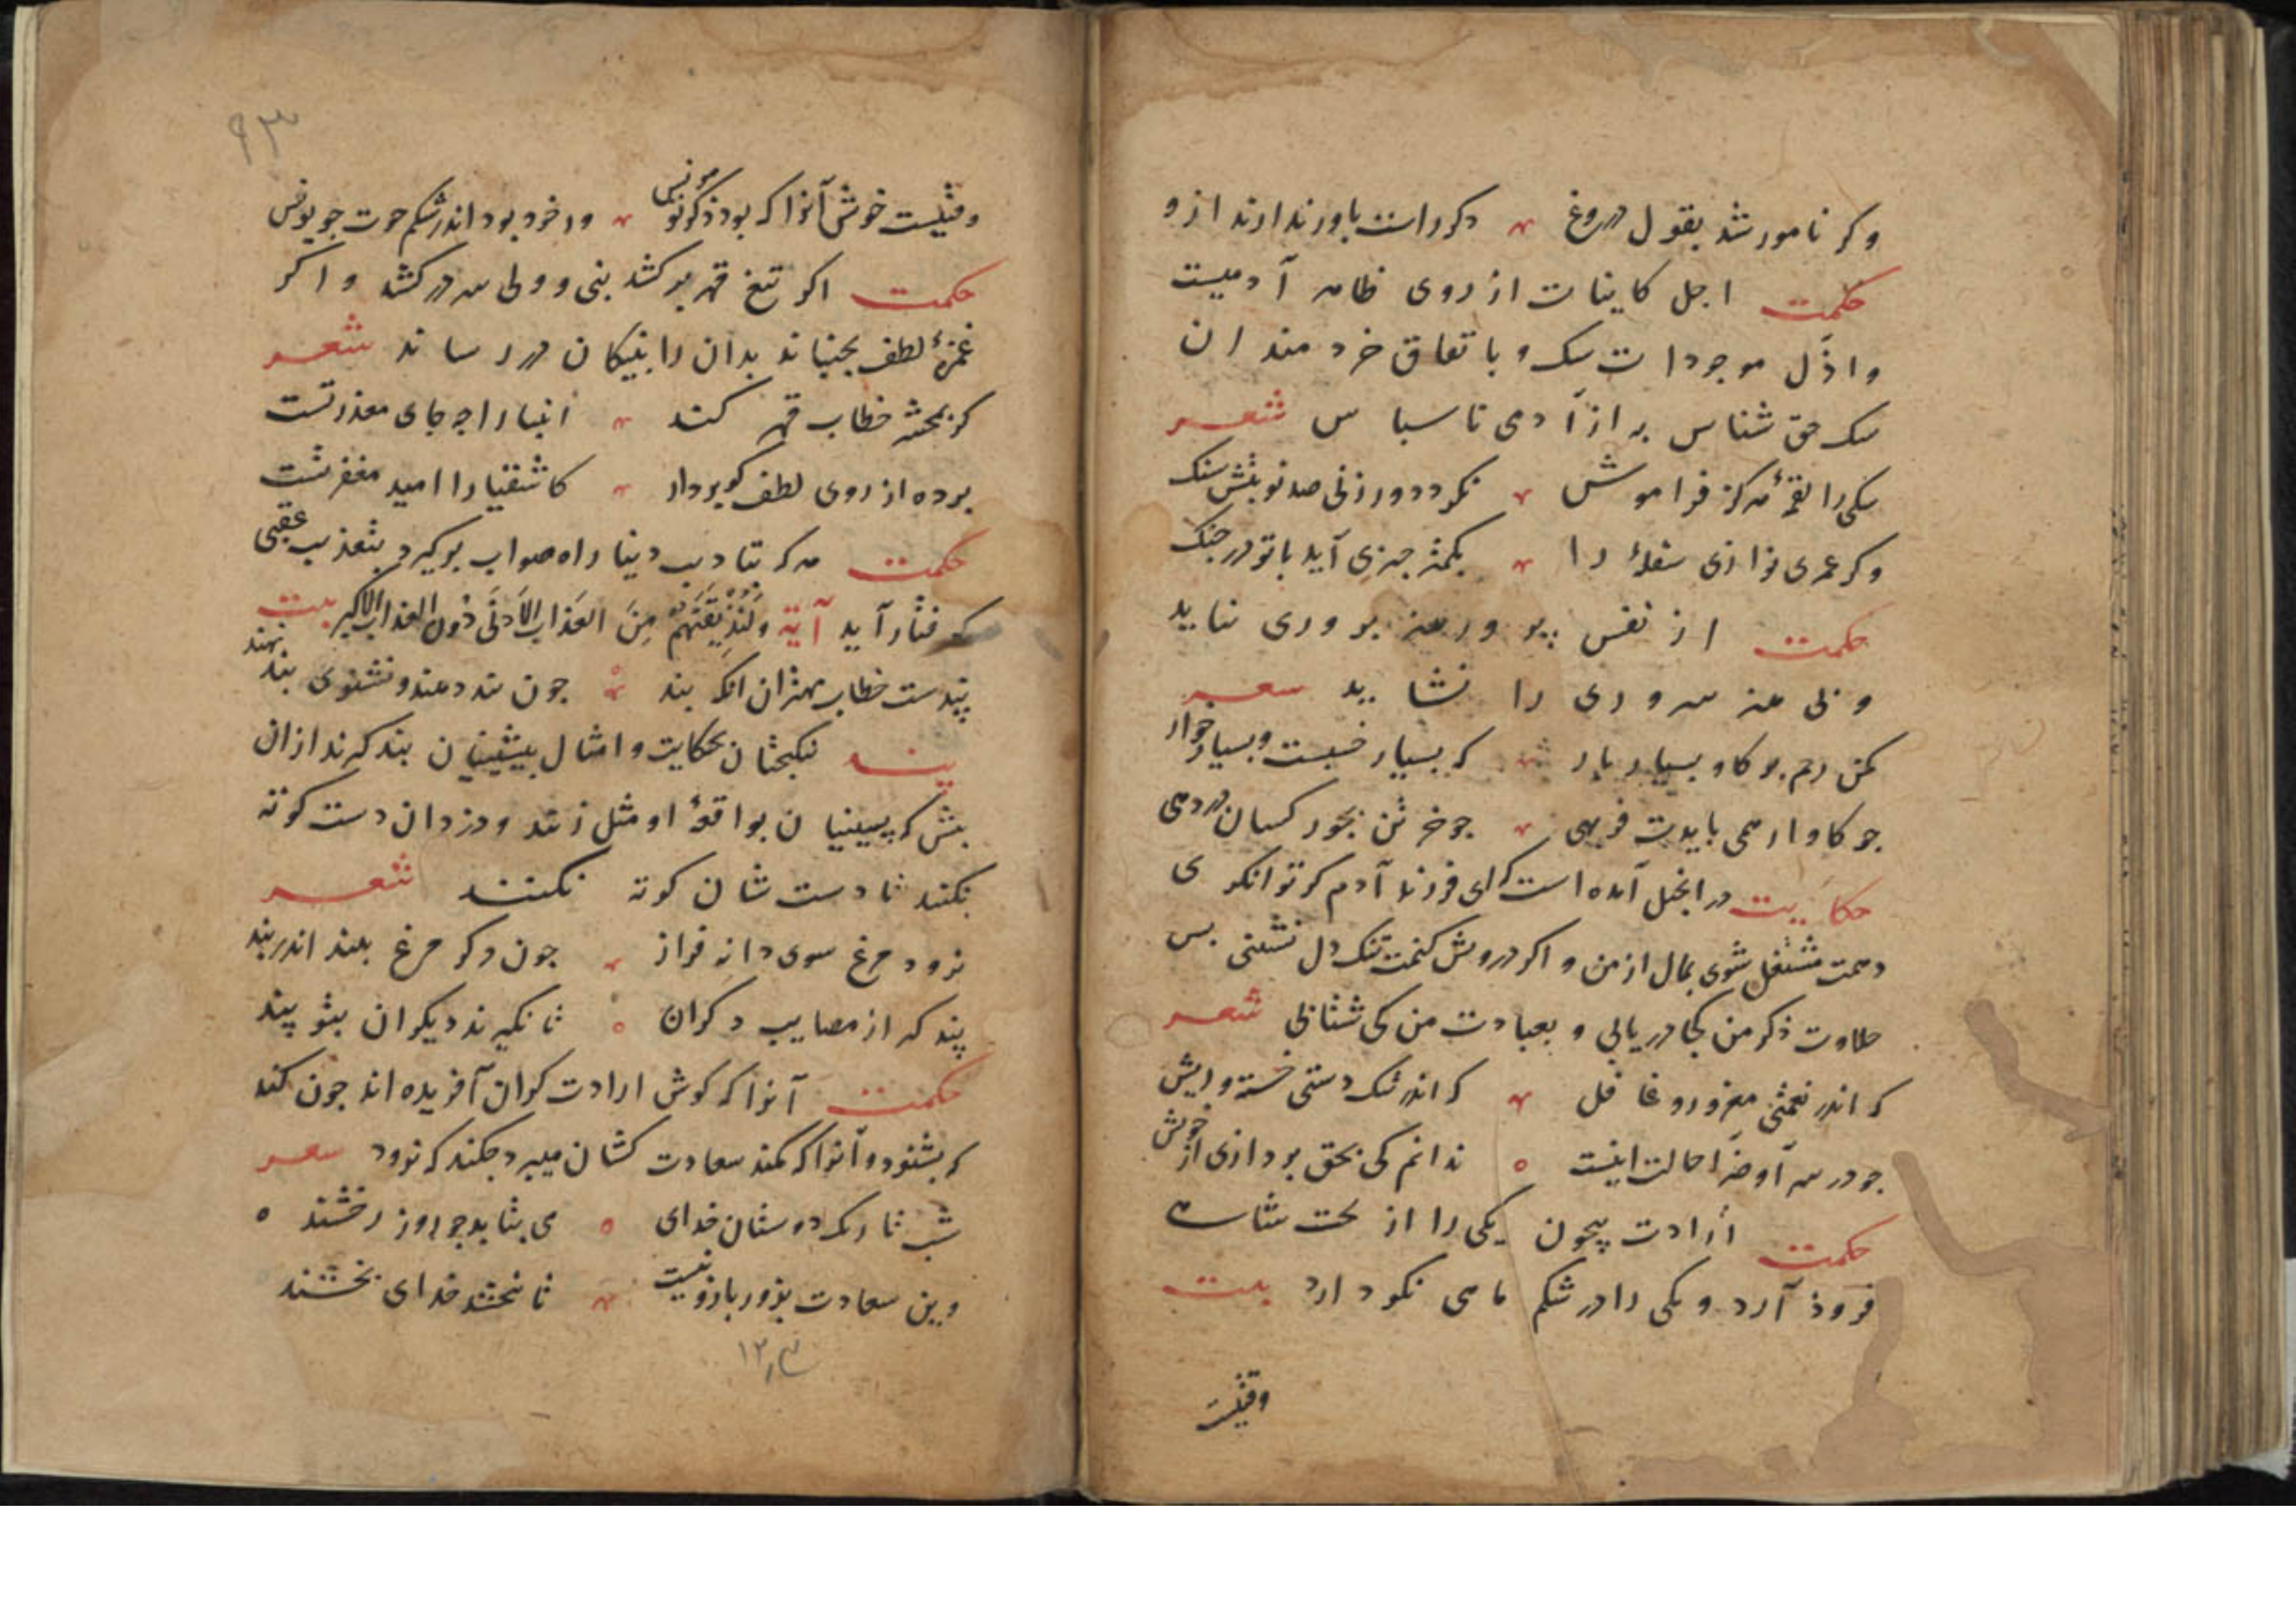 وکر نامور شد بقول دروغ دکر راست باور ندارند ازو
حکمت اجل کاینات از روی ظاهر آدمیست
واذل موجودات سک و باتفاق خردمندان
سک حق شناس به از آدمی ناسباس شعر
سکی را لقمهٔ هرکز فراموش نکردد ور زنی صد نوبتش سنک
وکر عمری نوازی سفلهٔ را بکمتر جیزی آید با تو در جنک
حکمت از نفس پرور هنر بروری نیاید
و بی هنر سروری را نشاید شعر
مکن رحم بر کاو بسیار بار که بسیار خسبست و بسیار خوار
جو کاو ار همی بایدت فربهی جو خر تن بجور کسان دردهی
حکایت در انجیل آمده است که ای فرزند آدم کر توانکری
دهمت مشتغل شوی بمال از من و اکر درویش کنمت تنک دل نشینی بس
حلاوت ذکر من کجا دریابی و بعبادت من کی شتابی شعر
که اندر نعمتی مغرور و غافل که اندر تنک دستی خسته و ریش
جو در سرآ و ضرا حالت اینست ندانم کی بحق بردازی از خویش
حکمت ارادت بیچون یکی را از تخت شاهی
فروذ آرد و یکی را در شکم ماهی نکو دارد بیت
وقتیست
۹۳
وقتیست خوش آنرا که بود ذکر تو مونس ور خود بود اندر شکم حوت جو یونس
حکمت اکر تیغ قهر برکشد نبی و ولی سر درکشد و اکر
غمزهٔ لطف بجنباند بدان را بنیکان در رساند شعر
کر بمحشر خطاب قهر کند انبیا را جه جای معذرتست
برده از روی لطف کو بردار کاشقیا را امید مغفرتست
حکمت هرکه بتادیب دنیا راه صواب برنکیرد بتعذیب عقبی
کرفتار آید آیة وَلَنُذِیقَنَّهُمْ مِنَ العَذابِ الاَدنَی دُونَ العذاب الاکبر بیت
پندست خطاب مهتران آنکه بند جون پند دهند و نشنوی بند نهند
پند نیکبختان بحکایت و امثال پیشینیان بند کیرند از آن
پیش که پسینیان بواقعهٔ او مثل زنند و دزدان دست کوته
نکنند تا دست شان کوته نکنند شعر
نرود مرغ سوی دانه فراز جون دکر مرغ بیند اندر بند
پند کیر از مصایب دکران تا نکیرند دیکران بتو پند
حکمت آنرا که کوش ارادت کران آفریده اند جون کند
که بشنود و آنرا که کمند سعادت کشان میبرد جکند که نرود شعر
شب تاریک دوستان خدای می بتابد جو روز رخشنده
وین سعادت بزور بازو نیست تا نبخشد خدای بخشنده